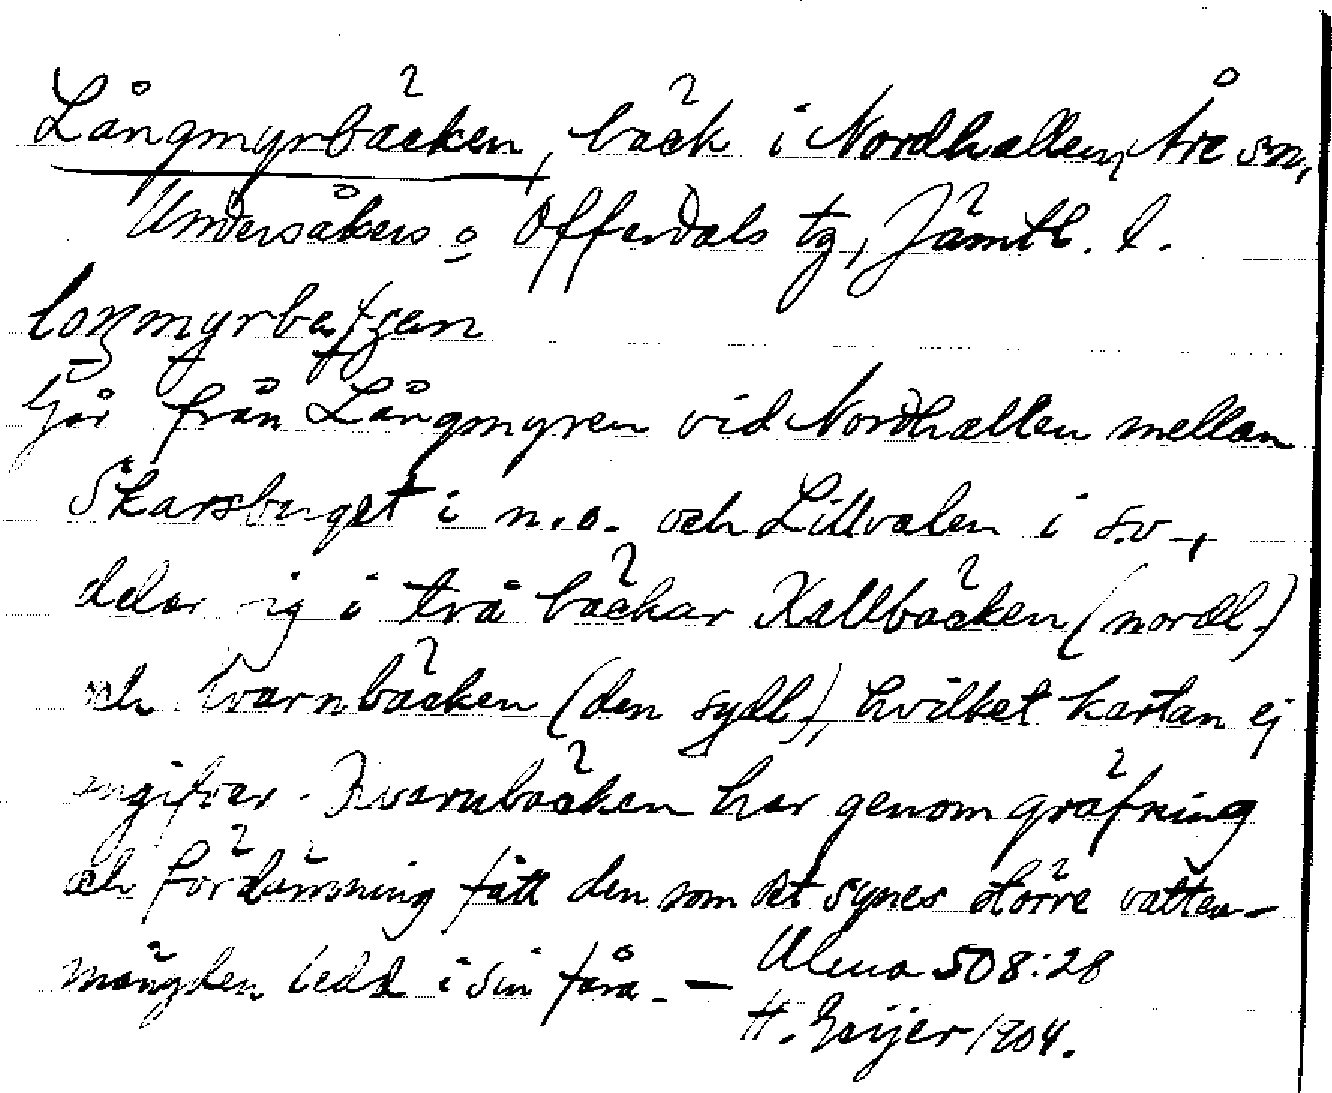 Långmyrbäcken, bäck i Nordhallen, Åre sn,
Undersåkers o Offerdals tg, Jämtl. l.
Går från Långmyren vid Nordhallen mellan
Skarsberget i n.o. och Lillvalen i s.v.,
delar sig i två bäckar Kallbäcken (nordl.)
och Kvarnbäcken (den sydl.), hvilket kartan ej
angifver. Kvarnbäcken har genom gräfning
och fördämning fått den som det synes större vatten-
mängden ledd i sin fåra. —
Ulma 508:28
H. Geijer 1904.